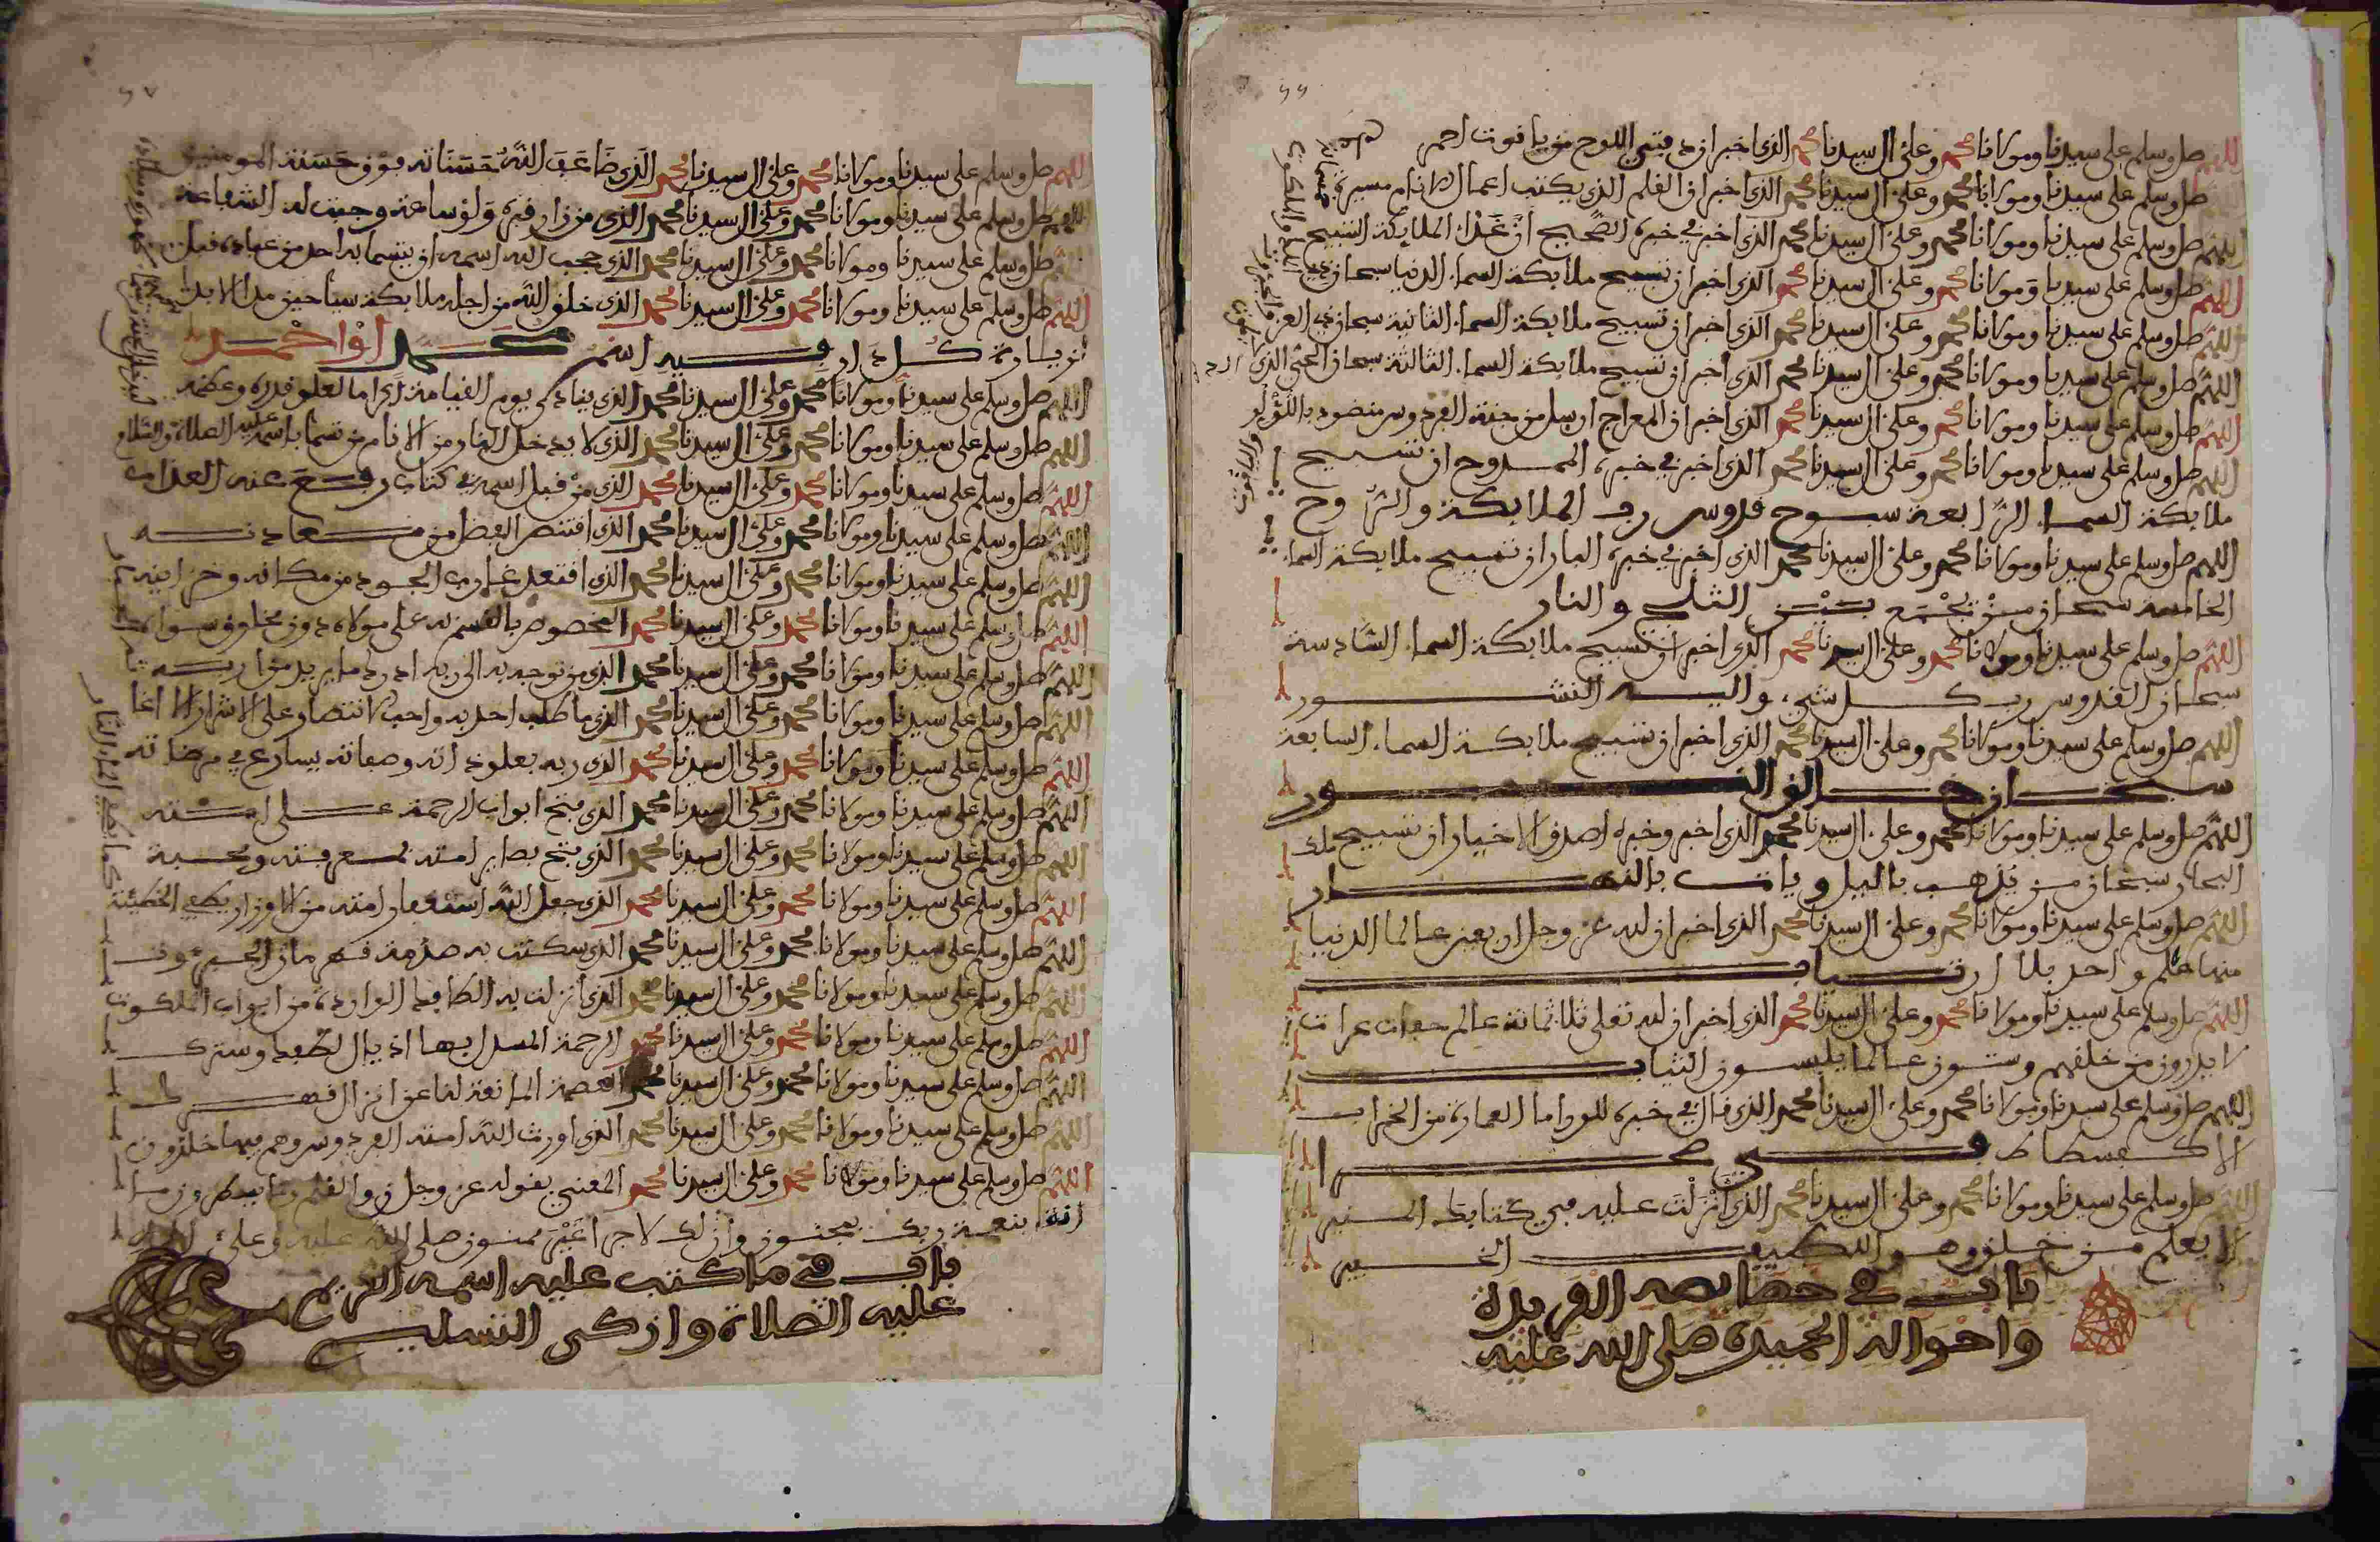 ٦٦
اللهم صل وسلم على سيدنا ومولانا محمد وعلى ال سيدنا محمد الذى اخبر ان دفتى اللوح من ياقوت احمر
اللهم صل وسلم على سيدنا ومولانا محمد وعلى ال سيدنا محمد الذى اخبر ان القلم الذى يكتب اعمال الانام مسيرة
اللهم صل وسلم على سيدنا ومولانا محمد وعلى ال سيدنا محمد الذى اخبر في خبره الصحيح ان غذاء الملايكة التسبيح
اللهم صل وسلم على سيدنا ومولانا محمد وعلى ال سيدنا محمد الذى اخبر ان تسبيح ملايكة السماء الدنيا سبحان ذي
اللهم صل وسلم على سيدنا ومولانا محمد وعلى ال سيدنا محمد الذى اخبر ان تسبيح ملايكة السماء الثانية سبحان ذي العز
اللهم صل وسلم على سيدنا ومولانا محمد وعلى ال سيدنا محمد الذى اخبر ان تسبيح ملايكة السماء الثالثة سبحان الحى الذى
اللهم صل وسلم على سيدنا ومولانا محمد وعلى ال سيدنا محمد الذى اخبر ان المعراج ارسل من جنة الفردوس منضود باللؤلؤ
اللهم صل وسلم على سيدنا ومولانا محمد وعلى ال سيدنا محمد الذى اخبر في خبره الممدوح ان تسبيح
ملايكة السماء الرابعة سبوح قدوس رب الملايكة والروح
اللهم صل وسلم على سيدنا ومولانا محمد وعلى ال سيدنا محمد الذى اخبر في خبره البار ان تسبيح ملايكة السماء
الخامسة سبحان من يجمع بين الثلج والنار
اللهم صل وسلم على سيدنا ومولانا محمد وعلى ال سيدنا محمد الذى اخبر ان تسبيح ملايكة السماء السادسة
سبحان القدوس رب كل شيء واليه النشور
اللهم صل وسلم على سيدنا ومولانا محمد وعلى ال سيدنا محمد الذى اخبر ان تسبيح ملايكة السماء السابعة
سبحان خالق النور
اللهم صل وسلم على سيدنا ومولانا محمد وعلى ال سيدنا محمد الذى اخبر وخبره اصدق الاخبار ان تسبيح ملك
البحار سبحان من يذهب باليل وياتى بالنهار
اللهم صل وسلم على سيدنا ومولانا محمد وعلى ال سيدنا محمد الذى اخبر ان لله عز وجل اربعين عالما الدنيا
منها علم واحد بلا ارتياب
اللهم صل وسلم على سيدنا ومولانا محمد وعلى ال سيدنا محمد الذى اخبر ان لله تعلى ثلاثمائة عالم حفات عرات
لا يدرون من خلقهم وستون عالما يلبسون الثياب
اللهم صل وسلم على سيدنا ومولانا محمد وعلى ال سيدنا محمد الذى قال في خبره للورا ما العمارة من الخراب
الا كفسطاط في صحرا
اللهم صل وسلم على سيدنا ومولانا محمد وعلى ال سيدنا محمد الذى انزلت عليه في كتابك المنير
الا يعلم من خلق وهو اللطيف الخبير
باب في خصايصه الفريدة
واحواله الحميدة صلى الله عليه
٦٧
اللهم صل وسلم على سيدنا ومولانا محمد وعلى ال سيدنا محمد الذى ضاعف الله حسناته فوق حسنة المومنين
اللهم صل وسلم على سيدنا ومولانا محمد وعلى ال سيدنا محمد الذى من زار قبره ولو ساعة وجبت له الشفاعة
اللهم صل وسلم على سيدنا ومولانا محمد وعلى ال سيدنا محمد الذى حجب الله اسمه ان يتسما به احد من عباده قبل
اللهم صل وسلم على سيدنا ومولانا محمد وعلى ال سيدنا محمد الذى خلق الله من اجله ملايكة سياحين مدا الابد
لزيارة كل دار فيه اسم محمد او احمد
اللهم صل وسلم على سيدنا ومولانا محمد وعلى ال سيدنا محمد الذى ينادى يوم القيامة اكراما لعلو قدره وعظمه
اللهم صل وسلم على سيدنا ومولانا محمد وعلى ال سيدنا محمد الذى لا يدخل النار من الانام من تسما باسمه عليه الصلاة والسلام
اللهم صل وسلم على سيدنا ومولانا محمد وعلى ال سيدنا محمد الذى من قبل اسمه في كتاب رفع عنه العذاب
اللهم صل وسلم على سيدنا ومولانا محمد وعلى ال سيدنا محمد الذى اقتنص الفضل من معادنه
اللهم صل وسلم على سيدنا ومولانا محمد وعلى ال سيدنا محمد الذى اقتعد غارب الجود من مكانه وخزاينه
اللهم صل وسلم على سيدنا ومولانا محمد وعلى ال سيدنا محمد المخصوص بالقسم به على مولاه دون مخلوق سواه
اللهم صل وسلم على سيدنا ومولانا محمد وعلى ال سيدنا محمد الذى من توجه به الى ربه ادرك ما يريد من اربه
اللهم صل وسلم على سيدنا ومولانا محمد وعلى ال سيدنا محمد الذى ما طلب احد به واحب الانتصار على الاشرار الا اغا
اللهم صل وسلم على سيدنا ومولانا محمد وعلى ال سيدنا محمد الذى ربه بعلو ذاته وصفاته يسارع في مرضاته
اللهم صل وسلم على سيدنا ومولانا محمد وعلى ال سيدنا محمد الذى فتح ابواب الرحمة على امته
اللهم صل وسلم على سيدنا ومولانا محمد وعلى ال سيدنا محمد الذى فتح بصاير امته لمعرفته ومحبة
اللهم صل وسلم على سيدنا ومولانا محمد وعلى ال سيدنا محمد الذى جعل الله استغفار امته من الاوزار يطفي الخطيئة
اللهم صل وسلم على سيدنا ومولانا محمد وعلى ال سيدنا محمد الذى سكنت به صدمة قهرمان الجبروت
اللهم صل وسلم على سيدنا ومولانا محمد وعلى ال سيدنا محمد الذى نزلت به الطافك الواردة من ابواب الملكوت
اللهم صل وسلم على سيدنا ومولانا محمد وعلى ال سيدنا محمد الرحمة المسدل بها اذيال لطفك وسترك
اللهم صل وسلم على سيدنا ومولانا محمد وعلى ال سيدنا محمد العصمة المانعة لنا عن انزال قهرك
اللهم صل وسلم على سيدنا ومولانا محمد وعلى ال سيدنا محمد الذى اورث الله امته الفردوس وهم فيها خلدون
اللهم صل وسلم على سيدنا ومولانا محمد وعلى ال سيدنا محمد المعني بقوله عز وجل ن والقلم وما يسطرون ما
انت بنعمة ربك بمجنون وان لك لاجرا غير ممنون صلى الله عليه وعلى
باب في ما كتب عليه اسمه الكريم
عليه الصلاة وازكى التسليم
كما يطفي الماء النار